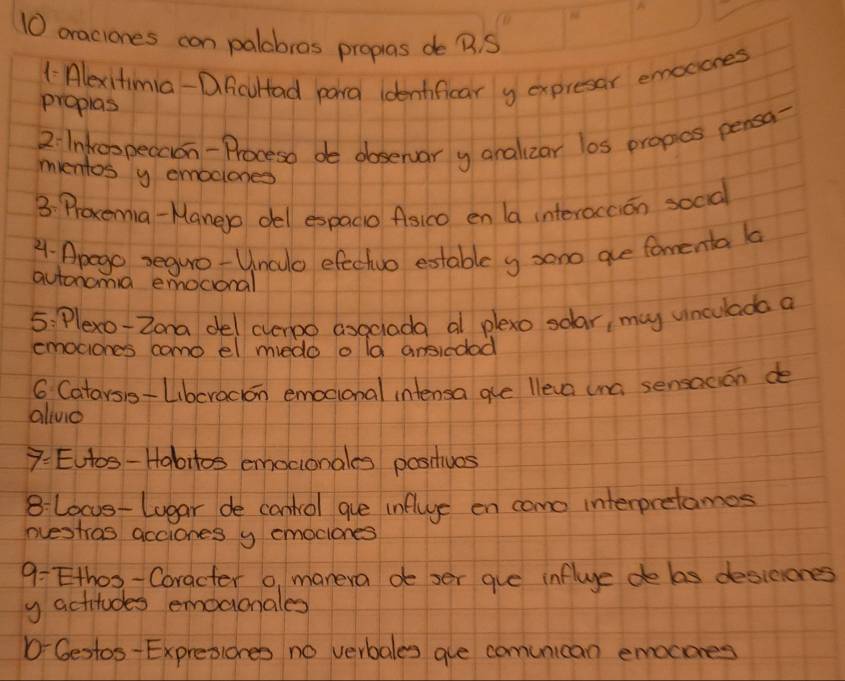 10 oraciones con palabras propias de R.S
1- Alexitimia - Dificultad para identificar y expresar emociones
propias
2- Introspección - Proceso de observar y analizar los propios pensa-
mientos y emociones
3- Proxemia - Manejo del espacio físico en la interacción social
4- Apego seguro - Vinculo efectivo estable y sano que fomenta la
autonomia emocional
5- Plexo - Zona del cuerpo asociada al plexo solar, muy vinculada a
emociones como el miedo o la ansiedad
6 Catarsis - Liberación emocional intensa que lleva una sensación de
alivio
7- Eutos - Habitos emocionales positivos
8- Locus - Lugar de control que influye en como interpretamos
nuestras acciones y emociones
9- Ethos - Caracter o manera de ser que influye de las desiciones
y actitudes emocionales
10- Gestos - Expresiones no verbales que comunican emociones